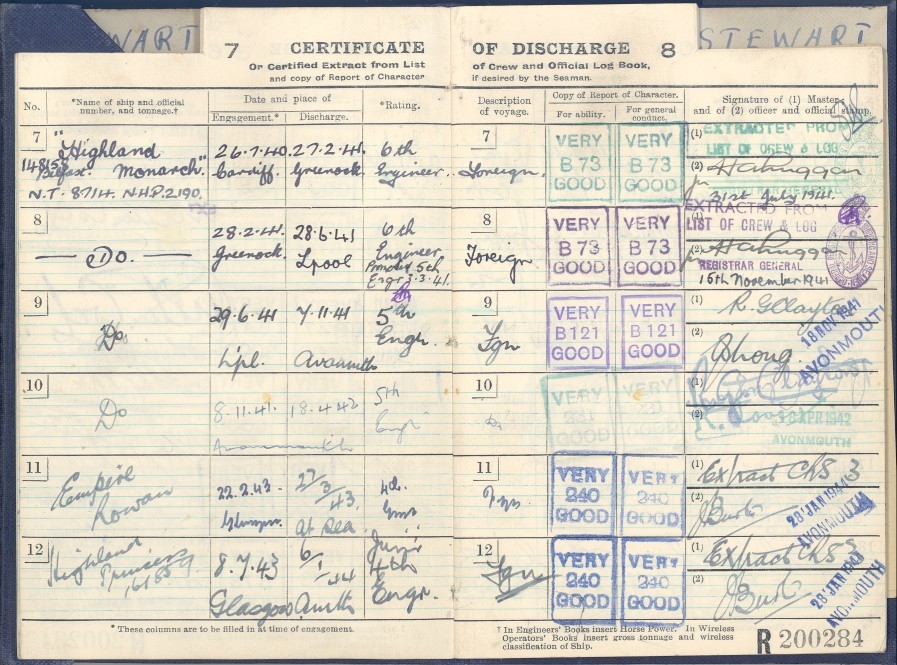 STEWART
7 CERTIFICATE OF DISCHARGE 8
Or Certified Extract from List of Crew and Official Log Book,
and copy of Report of Character if desired by the Seaman.
No.
*Name of ship and official number, and tonnage.†
Date and place of
Engagement.* Discharge.
*Rating.
Description of voyage.
Copy of Report of Character.
For ability. For general conduct.
Signature of (1) Master and of (2) officer and official stamp.
7
"Highland
Monarch"
Belfast
N.T. 8714. N.H.P. 2190.
26.7.40. 27.2.41.
Cardiff. Greenock.
6th
Engineer.
7
Foreign.
VERY VERY
B 73 B 73
GOOD GOOD
(1) EXTRACTED FROM
LIST OF CREW & LOG
(2)
31st July 1941.
8
Do.
28.2.41. 28.6.41
Greenock. Lpool
6th
Engineer
5th
Engr 3.3.41.
8
Foreign
VERY VERY
B 73 B 73
GOOD GOOD
(1) EXTRACTED FROM
LIST OF CREW & LOG
(2)
REGISTRAR GENERAL
15th November 1941
9
Do
29.6.41 7.11.41
L'pl. Avonmouth
5th
Engr.
9
Fgn
VERY VERY
B 121 B 121
GOOD GOOD
(1)
(2)
18 NOV 1941
AVONMOUTH
10
Do
8.11.41. 18.4.42
Avonmouth
5th
Engr
10
Do
VERY VERY
231 231
GOOD GOOD
(1)
(2)
APR 1942
AVONMOUTH
11
Empire
Rowan
22.2.43. 27/3/43
Glasgow. at Sea
4th
11
Fgn
VERY VERY
240 240
GOOD GOOD
(1) Extract
(2) J Burt
28 JAN 1944
AVONMOUTH
12
Highland
Princess
8.7.43 6/1/44
Glasgow Avmth
Junr
4th
Engr.
12
Fgn
VERY VERY
240 240
GOOD GOOD
(1) Extract
(2) J Burt
28 JAN
AVONMOUTH
* These columns are to be filled in at time of engagement.
† In Engineers' Books insert Horse Power. In Wireless
Operators' Books insert gross tonnage and wireless
classification of Ship.
R 200284